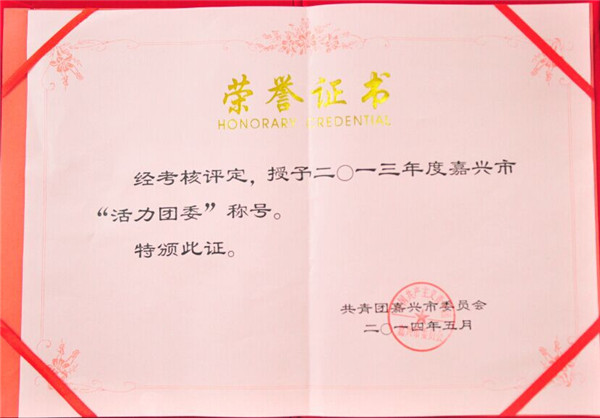 荣誉证书
HONORARY CREDENTIAL
经考核评定，授予二〇一三年度嘉兴市
“活力团委”称号。
特颁此证。
共青团嘉兴市委员会
二〇一四年五月